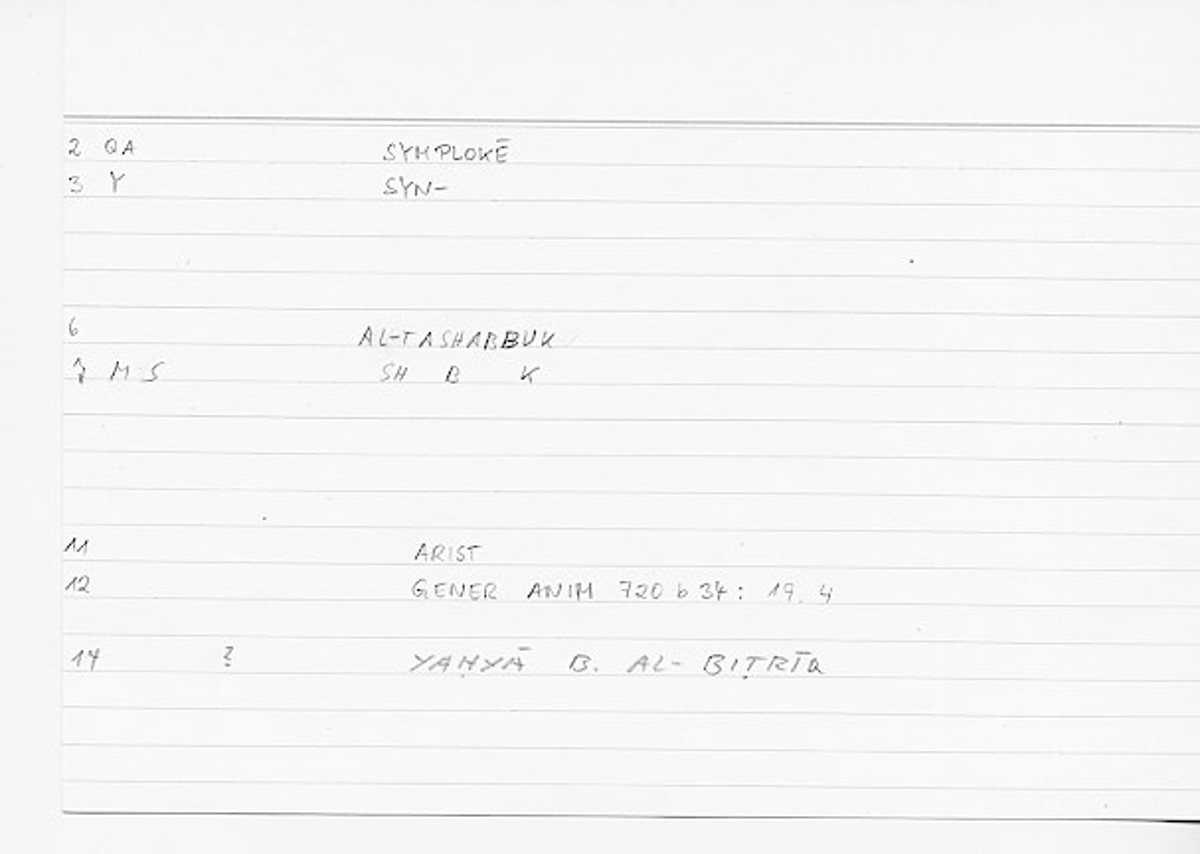 2 QA SYMPLOKĒ
3 Y SYN-
6 AL-TASHABBUK
7 M S SH B K
11 ARIST
12 GENER ANIM 720 b 34: 19. 4
14 ? YAḤYĀ B. AL-BIṬRĪQ